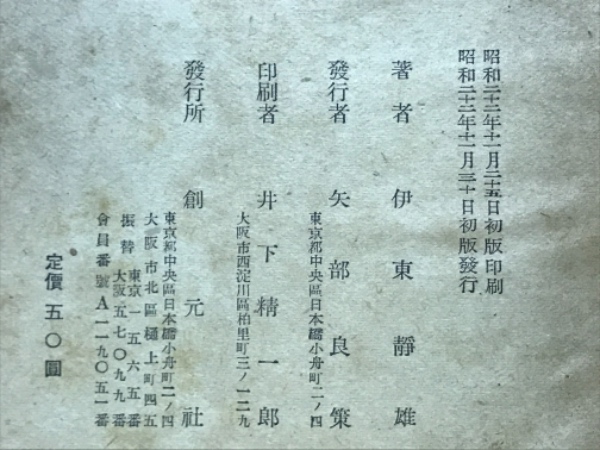 昭和二十二年十一月二十五日初版印刷
昭和二十二年十一月三十日初版發行
著者 伊東靜雄
發行者 矢部良策
東京都中央區日本橋小舟町二ノ四
印刷者 井下精一郎
大阪市西淀川區柏里町三ノ一二九
發行所 創元社
東京都中央區日本橋小舟町二ノ四
大阪市北區樋上町四五
振替 東京一五六五番
大阪五七〇九九番
會員番號A一一九〇五一番
定價 五〇圓